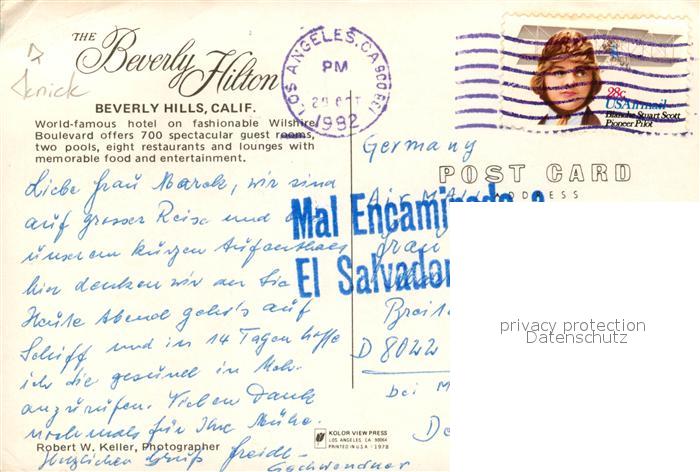 THE
Beverly Hilton
BEVERLY HILLS, CALIF.
World-famous hotel on fashionable Wilshire
Boulevard offers 700 spectacular guest rooms,
two pools, eight restaurants and lounges with
memorable food and entertainment.
LOS ANGELES, CA
PM
1982
28c
USAirmail
Blanche Stuart Scott
Pioneer Pilot
Germany
POST CARD
ADDRESS
Mal Encaminada a
El Salvador
Liebe Frau Marek, wir sind
auf grosser Reise und
unserem kurzen Aufenthaes
hier denken wir an Sie
Heute Abend geht's auf
Schiff und in 14 Tagen hoffe
ich die gesund in
anzurufen. Vielen Dank
nochmals für Ihre Mühe.
Herzlichen Gruß
Gschwendner
Frau
D 8022
bei M
KOLOR VIEW PRESS
LOS ANGELES, CA 90064
PRINTED IN U.S.A. 1978
Robert W. Keller, Photographer
privacy protection
Datenschutz